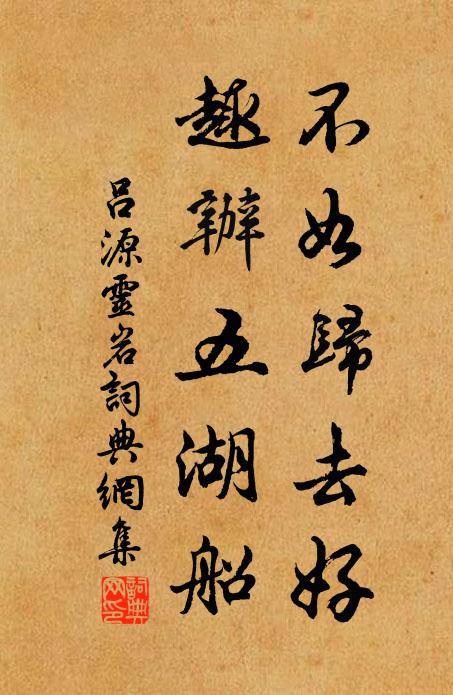 不如歸去好
趣辦五湖船
吕源靈岩詞典網集
詞典網印